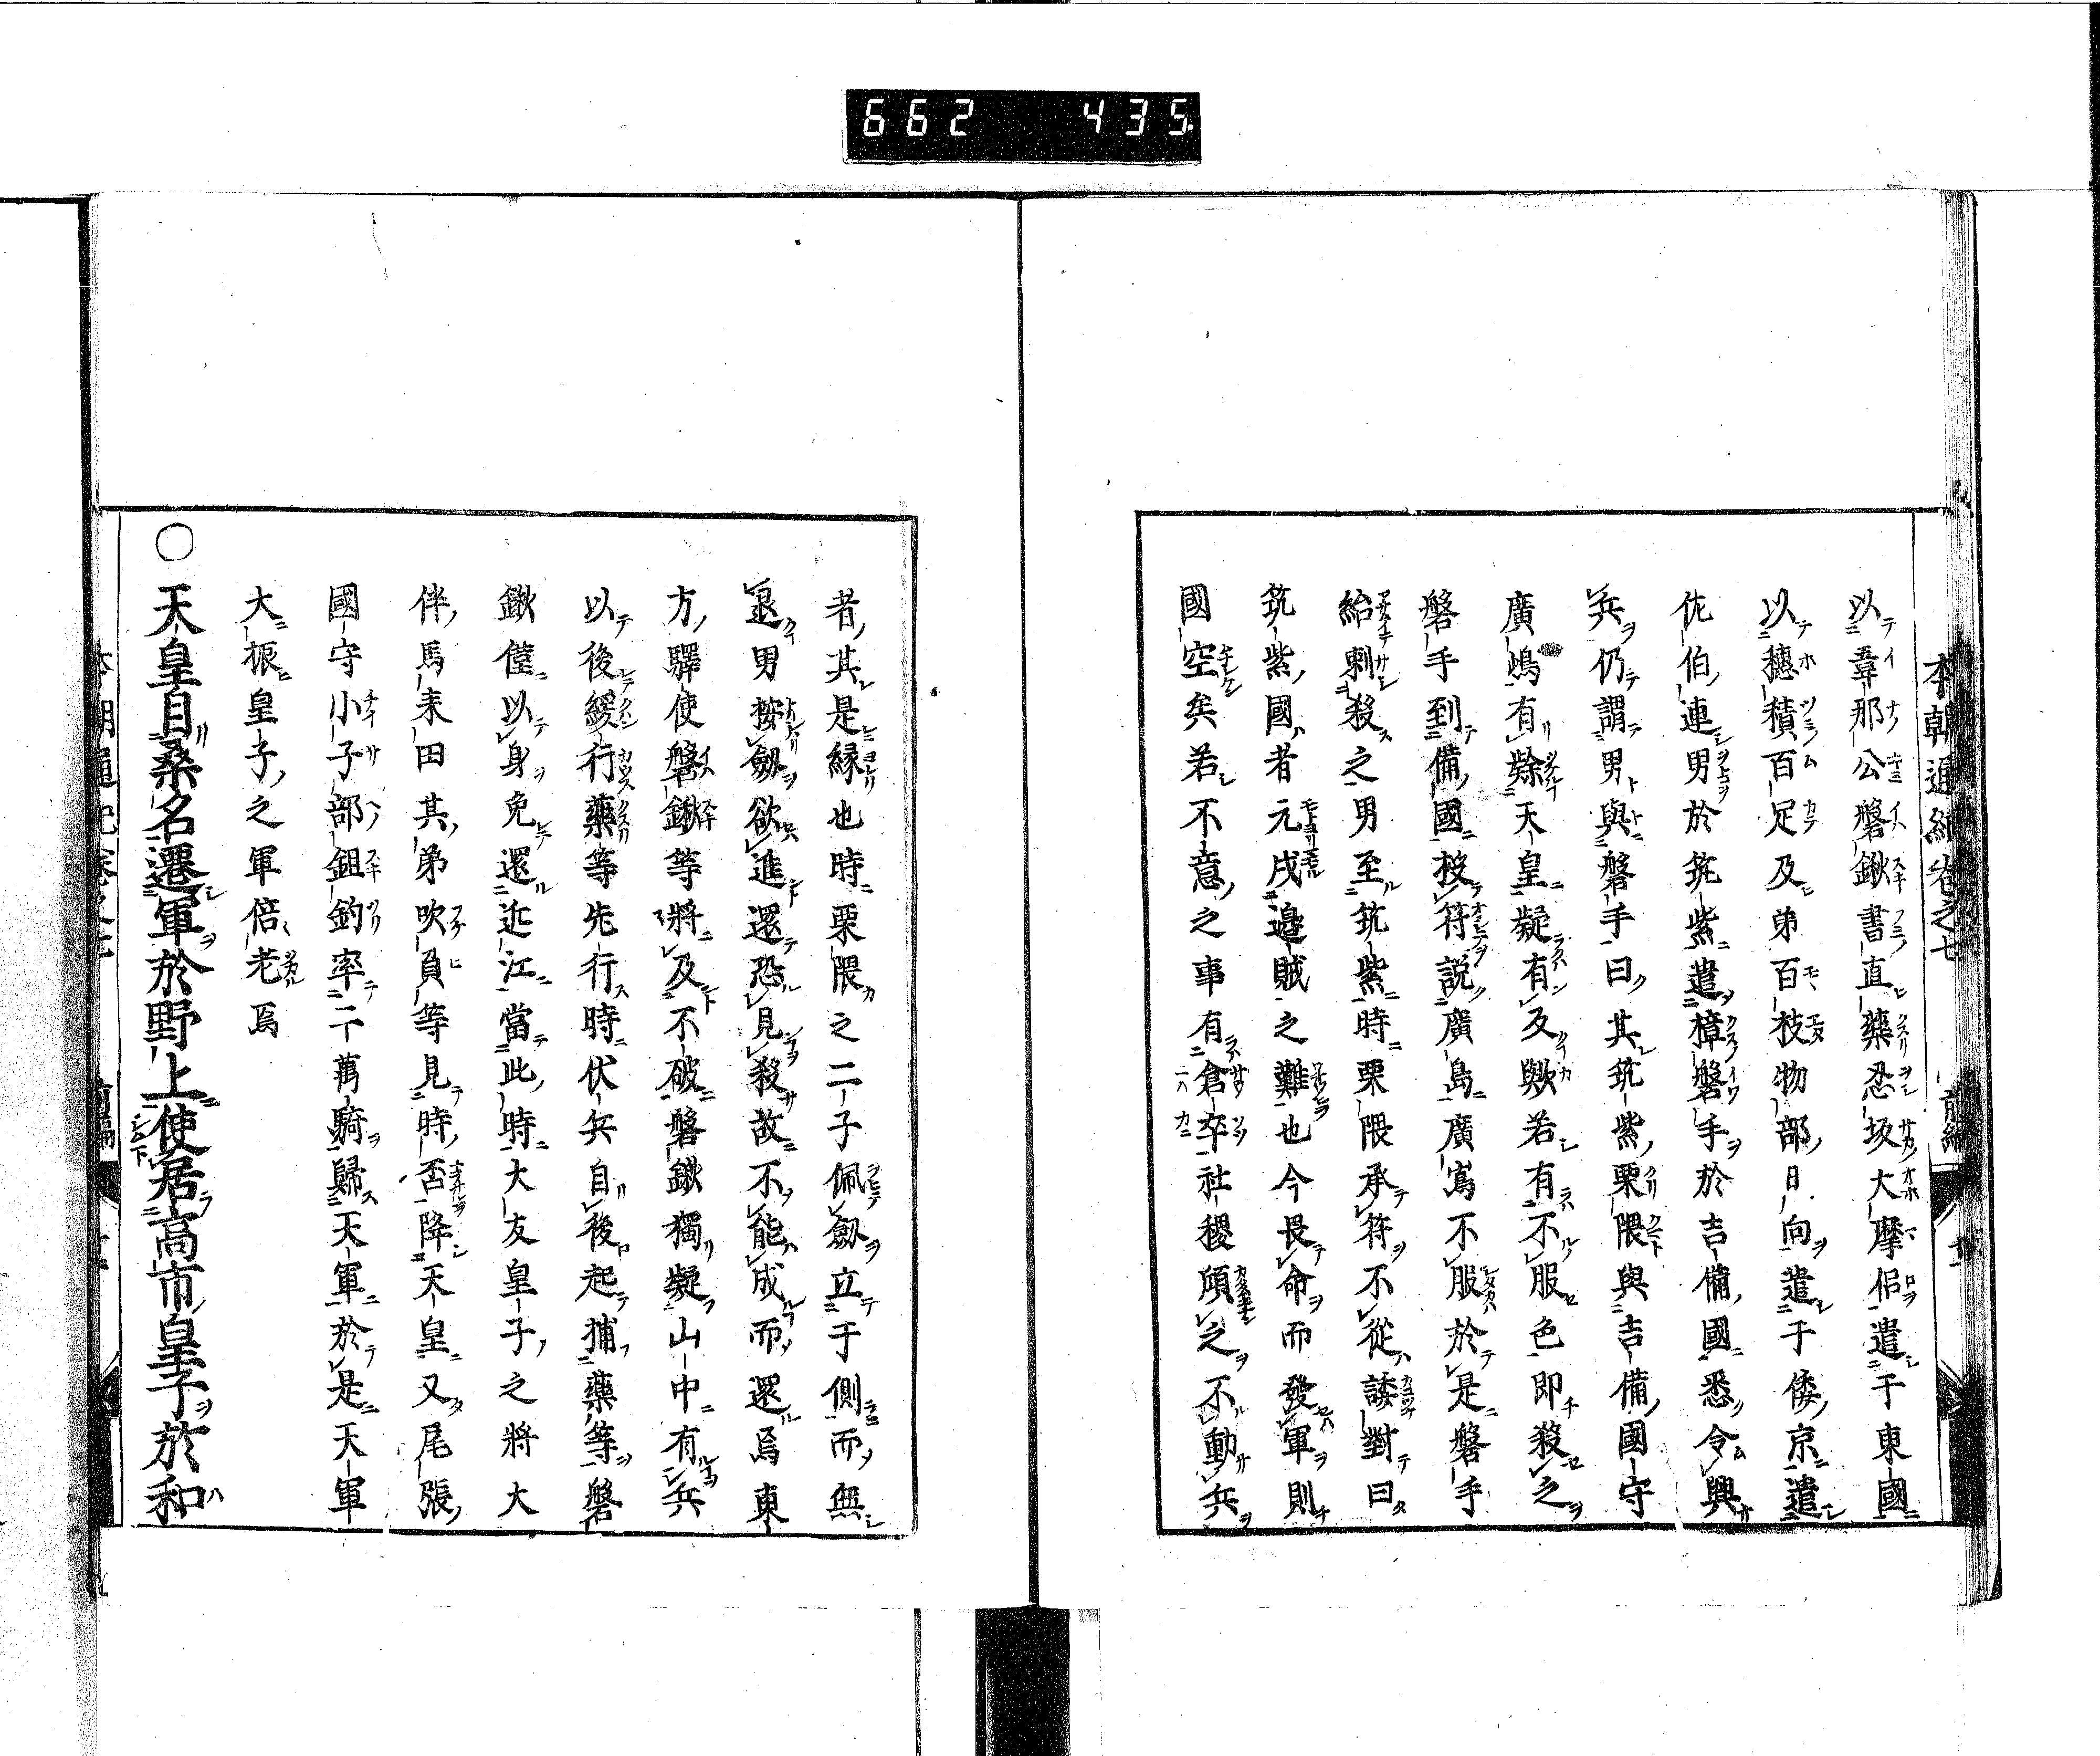 662 435
本朝通紀卷之七 前編
以韋那公磐鍬書直藥忍坂大摩侶遣于東國
以穗積百足及弟百枝物部日向遣于倭京遣
佐伯連男於筑紫遣樟磐手於吉備國悉令興
兵仍謂男與磐手曰其筑紫栗隈與吉備國守
廣嶋有隸天皇疑有反歟若有不服色即殺之
磐手到備國授符説廣島廣嶌不服於是磐手
紿刺殺之男至筑紫時栗隈承符不從諉對曰
筑紫國者元戍邉賊之難也今畏命而發軍則
國空矣若不意之事有倉卒社稷頎之不動兵
者其是縁也時栗隈之二子佩劔立于側而無
退男按劔欲進還恐見殺故不能成而還焉東
方驛使磐鍬等將及不破磐鍬獨疑山中有兵
以後緩行藥等先行時伏兵自後起捕藥等磐
鍬僅以身免還近江當此時大友皇子之將大
伴馬来田其弟吹負等見時否降天皇又尾張
國守小子部鉏釣率二萬騎歸天軍於是天軍
大振皇子之軍倍老焉
○天皇自桑名遷軍於野上使居高市皇子於和